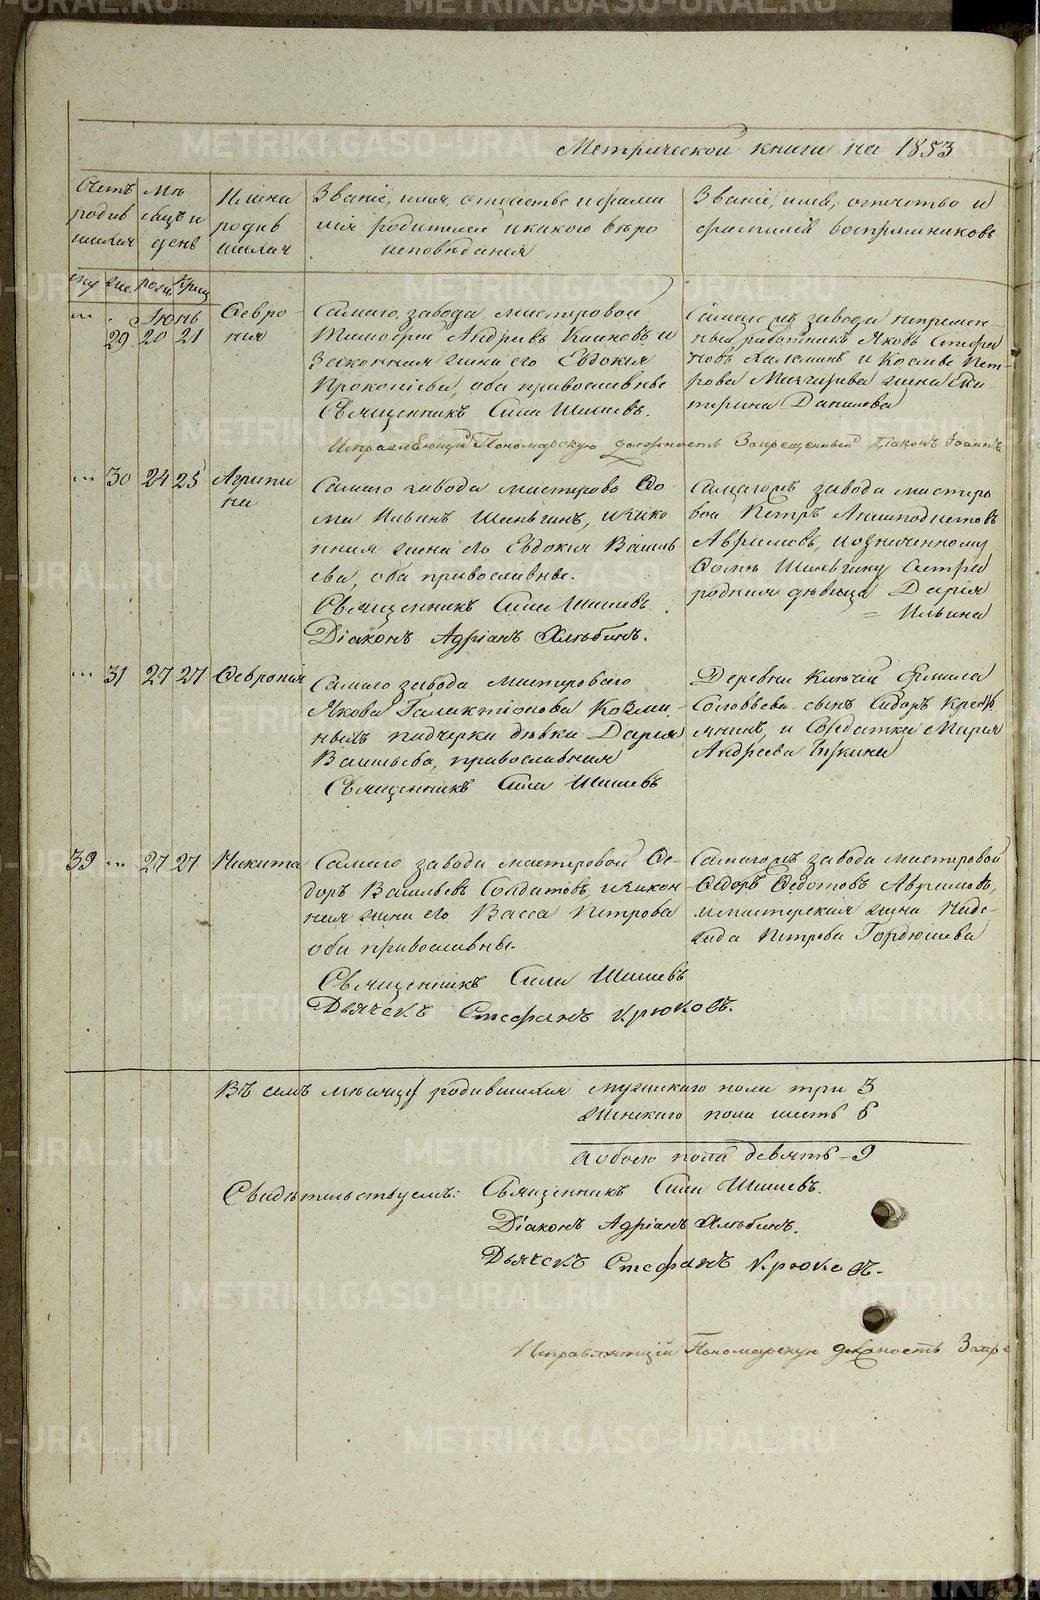 Метрической книги на 1853
Счетъ родив шихся
Мѣ сяцъ и день
Имена родив шихся
Званіе, имя, отчество и фами
лія родителей и какого вѣро
исповѣданія
Званіе, имя, отчество и
фамилія воспріемниковъ
Іюнь
29 20 21
Февро
нія
Самаго завода мастеровой
Тимофей Андреевъ и
Законная жена его Евдокія
Прокопіева, оба православные
Священникъ Сила Шишевъ.
Самагожъ завода непремен-
ный работникъ Яковъ Стефа
новъ и Косьвы Пет-
рова жена Ека-
терина Данилова
Исправляющій Пономарскую должность Запрещенный Діаконъ Іоаннъ
30 24 25
Агрипи
на
Самаго завода мастерово Фо
ма Ильинъ Шаньгинъ, и зако
нная жена его Евдокія Василь
ева, оба православные.
Священникъ Сила Шишевъ
Діаконъ Адріанъ Хлѣбинъ.
Самагожъ завода мастеро
вой Петръ
Аврамовъ, и означенному
Фомѣ Шаньгину сестра
родная дѣвица Дарія
= Ильина
31 27 27
Февронія
Самаго завода мастероваго
Якова Галактіонова Козми-
ныхъ падчерки дѣвки Дарія
Васильева, православная
Священникъ Сила Шишевъ
Деревни Ключей
Соловьева сынъ Сидоръ Кресть
янинъ, и Солдатка Марія
Андреева
39 27 27
Никита
Самаго завода мастеровой Фе-
доръ Васильевъ Солдатовъ, и закон-
ная жена его Васса Петрова
оба православные.
Священникъ Сила Шишевъ
Дьячекъ Стефанъ Крюковъ.
Самагожъ завода мастеровой
Федоръ Федотовъ Аврамовъ,
и мастерская жена Наде-
жда Петрова Гордюшева
Въ семъ мѣсяцѣ родившихся мужскаго пола три 3
женскаго пола шесть 6
А обоего пола девять - 9
Свидѣтельствуемъ: Священникъ Сила Шишевъ.
Діаконъ Адріанъ Хлѣбинъ.
Дьячекъ Стефанъ Крюковъ.
Исправляющій Пономарскую должность Запре
METRIKI.GASO-URAL.RU